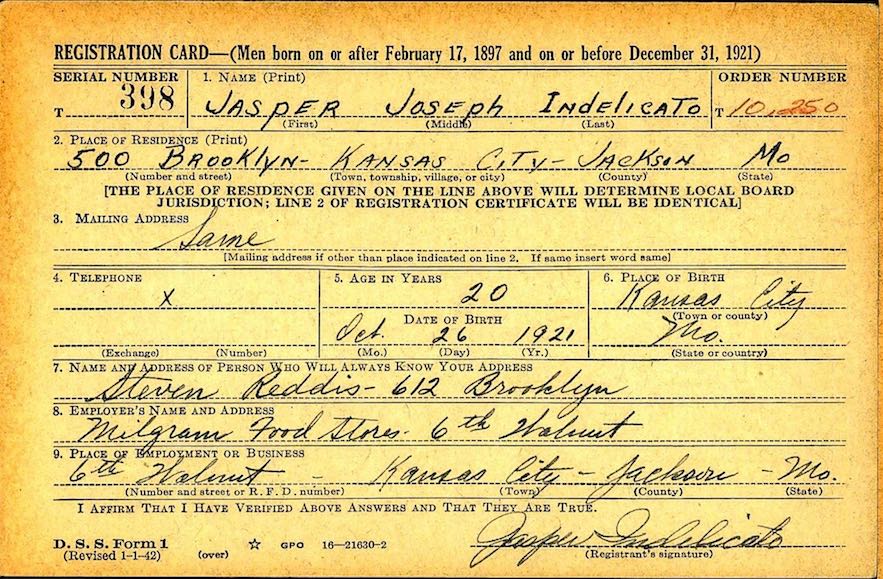 REGISTRATION CARD—(Men born on or after February 17, 1897 and on or before December 31, 1921)
SERIAL NUMBER
T 398
1. NAME (Print)
JASPER JOSEPH INDELICATO
(First) (Middle) (Last)
ORDER NUMBER
T 10,250
2. PLACE OF RESIDENCE (Print)
500 BROOKLYN- KANSAS CITY- JACKSON MO
(Number and street) (Town, township, village, or city) (County) (State)
[THE PLACE OF RESIDENCE GIVEN ON THE LINE ABOVE WILL DETERMINE LOCAL BOARD
JURISDICTION; LINE 2 OF REGISTRATION CERTIFICATE WILL BE IDENTICAL]
3. MAILING ADDRESS
Same
[Mailing address if other than place indicated on line 2. If same insert word same]
4. TELEPHONE
x
(Exchange) (Number)
5. AGE IN YEARS
20
DATE OF BIRTH
Oct. 26 1921
(Mo.) (Day) (Yr.)
6. PLACE OF BIRTH
Kansas City
(Town or county)
Mo.
(State or country)
7. NAME AND ADDRESS OF PERSON WHO WILL ALWAYS KNOW YOUR ADDRESS
Steven Reddis- 612 Brooklyn
8. EMPLOYER'S NAME AND ADDRESS
Milgram Food Stores- 6th Walnut
9. PLACE OF EMPLOYMENT OR BUSINESS
6th Walnut - Kansas City - Jackson - Mo.
(Number and street or R. F. D. number) (Town) (County) (State)
I AFFIRM THAT I HAVE VERIFIED ABOVE ANSWERS AND THAT THEY ARE TRUE.
D. S. S. Form 1
(Revised 1-1-42) (over) ☆ GPO 16—21630-2
Jasper Indelicato
(Registrant's signature)